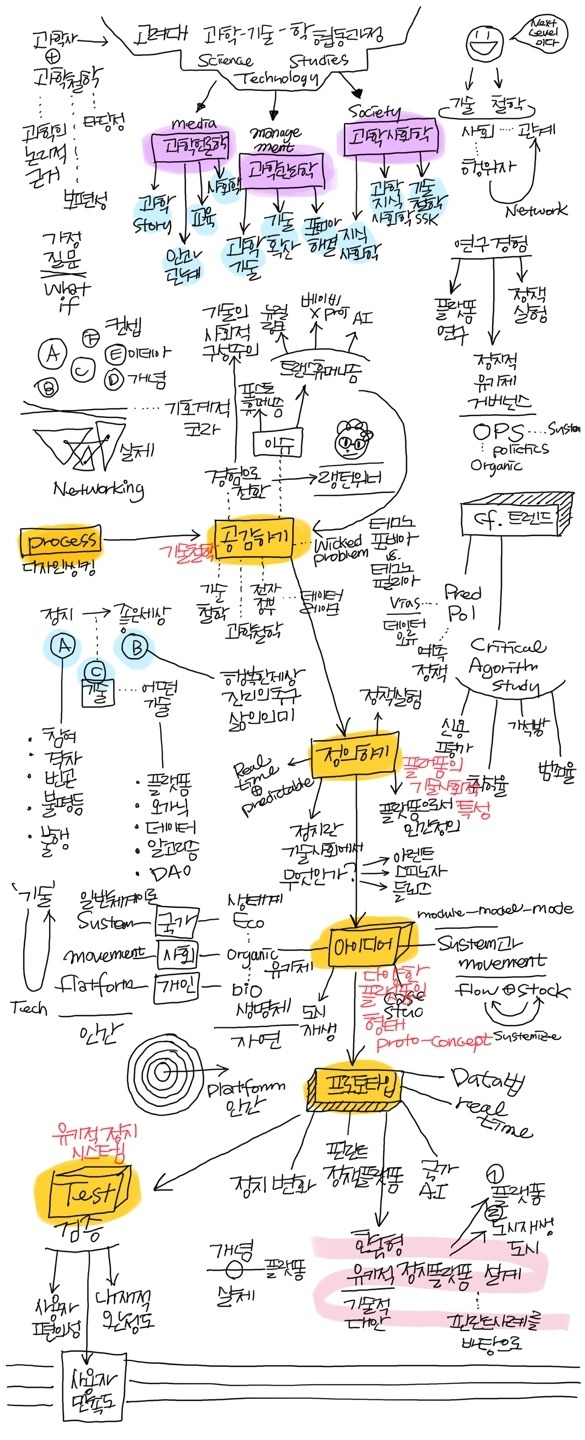 고려대 과학-기술-학 협동과정
Science Technology Studies
과학자
+
과학철학
과학의
논리적
근거
타당성
보편성
가정
질문
What
if
Next
Level
이다
기술 철학
사회 관계
행위자
Network
media
과학언론학
과학
story
인과
관계
교육
사회학
manage
ment
과학관리학
과학
기술
기술
확산
Society
과학사회학
지식
사회학
과학
지식
사회학
기술
철학
SSK
연구 경험
플랫폼
연구
정책
실험
정치적
유기체
거버넌스
OPS
System
politics
Organic
A
F
E
B
C
D
컨셉
이데아
개념
기호계적
코라
실제
Networking
기술의
사회적
구성주의
뉴럴
링크
AI
트랜스휴머니즘
포스트
휴머니즘
이슈
경험으로
전환
랭던위너
process
디자인씽킹
기술철학
공감하기
Wicked
problem
테크노
포비아
vs.
테크노
필리아
기술
철학
과학철학
전자
정부
cf. 트렌드
Pred
Pol
Vias
데이터
오류
예측
정책
Critical
Algorithm
study
신용
평가
범죄율
정치
좋은세상
A
B
C
기술
어떤
기술
행복한세상
진리의 추구
삶의의미
참여
격차
빈곤
불평등
불행
플랫폼
오가닉
데이터
알고리즘
DAO
정책실험
정의하기
Real
time
+
predictable
플랫폼의
기술사회적
특성
플랫폼으로서
인간정의
정치란
기술사회에서
무엇인가?
아렌트
스피노자
들뢰즈
'기술'
Tech
일반체계이론
System 국가
movement 사회
flatform 개인
인간
생태계
Eco
Organic
유기체
bio
생명체
자연
아이디어
module-model-mode
System과
movement
flow ⊕ stock
Systemize
도시
재생
다양한
플랫폼의
형태
proto-concept
Platform
인간
프로토타입
Data법
real
time
정치 변화
핀란드
정책플랫폼
국가
AI
유기적 정치
시스템
Test
검증
사용자
편의성
내재적
완성도
사용자
만족도
개념
플랫폼
실제
한국형
유기적 정치플랫폼 설계
기술적
대안
①
플랫폼
②
도시재생
도시
핀란드사례를
바탕으로